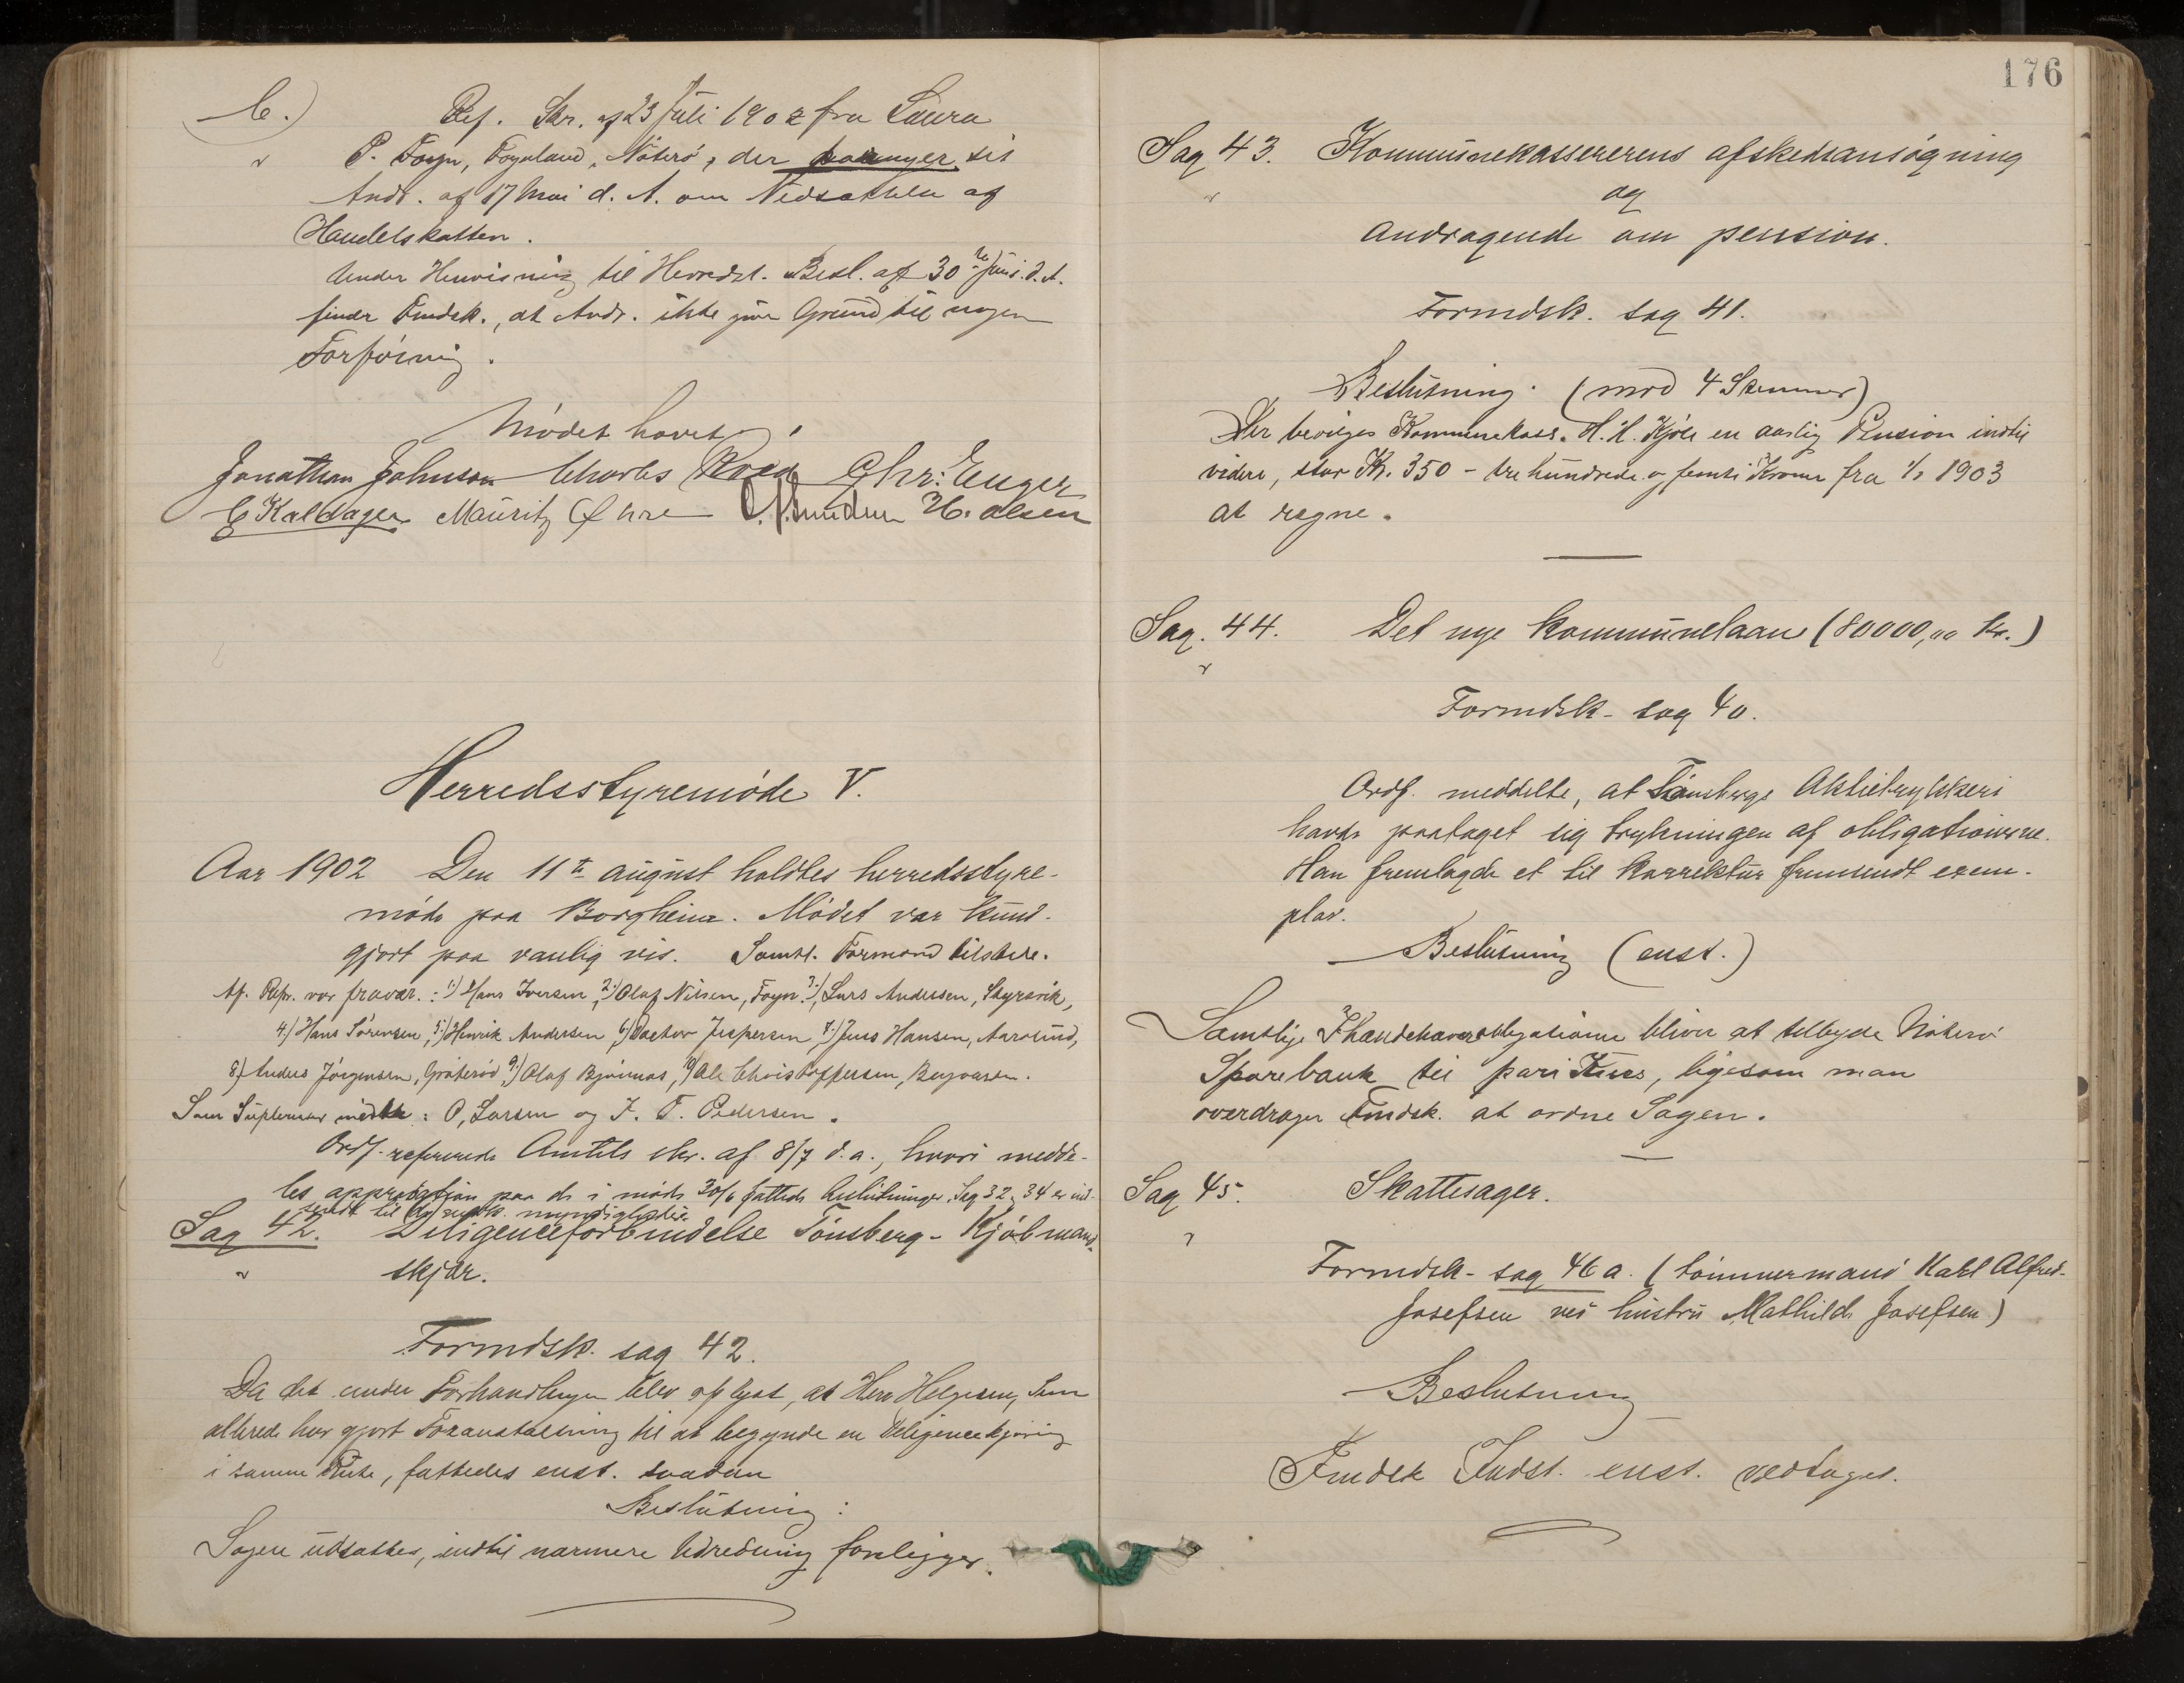 C.)
Ref. Skr. af 23 Juli 1902 fra Laura
P. Foyn, Foynland, Nöterö, der
Andr. af 17 Mai d. A. om Nedsættelse af
Handelskatten.
Under Henvisning til Herredst. Besl. af 30te Juni d. A.
finder Fmdsk., at Andr. ikke giver Grund til nogen
Forföining.
Mödet hævet.
Jonathan Johnson Charles Roed Chr: Enger
C Kaldager Mauritz H. Olsen
Herredsstyremöde V.
Aar 1902 Den 11te august holdtes herredsstyre-
möde paa Borgheim. Mödet var kund-
gjort paa vanlig vis. Samtl. Formænd tilstede.
Af Repr. var fravær.: 1) Hans Iversen, 2) Olaf Nilsen, Foyn. 3) Lars Andersen, Skjærsvik,
4) Hans Sörensen, 5) Henrik Andersen, 6) Doctor Jespersen, 7) Jens Hansen, Aarøsund,
8) Anders Jörgensen, Gröterød 9) Olaf Bjönnæs, 10) Ole Christoffersen, Bergvaren.
Som Suppleanter mødte: O, Larsen og F. T. Pedersen.
Ordf. refererede Amtets skr. af 8/7 d. a., hvori medde-
les approbation paa de i möde 30/6 fattede beslutninger. Sag 32, 34 er ind-
sendt til myndigheder.
Sag 42. Diligenceforbindelse Tönsberg - Kjöbmand-
skjær.
Formdsk. sag 42.
Da det under Forhandlingen blev oplyst, at Herr Helgesen, Sem
allerede har gjort Foranstaltning til at begynde en Diligencekjøring
i samme Rute, fattedes enst. saadan
Beslutning:
Sagen udsættes, indtil nærmere Udredning foreligger.
176
Sag 43. Kommunekassererens afskedsansögning
og
andragende om pension.
Formdsk. sag 41.
Beslutning. (mod 4 Stemmer)
Der bevilges Kommunekass. H. H. Kjær en aarlig Pension indtil
videre, stor Kr. 350 - tre hundrede og femti Kroner fra 1/1 1903
at regne.
Sag. 44. Det nye kommunelaan (80000,00 kr.)
Formdsk- sag 40.
Ordf. meddelte, at Tönsbergs Aktietrykkeri
havde paataget sig trykningen af obligationerne.
Han fremlagde et til korrektur fremsendt exem-
plar.
Beslutning (enst.)
Samtlige Ihændehaverobligationer bliver at tilbyde Nöterö
Sparebank til pari Kurs, ligesom man
overdrager Fmdsk. at ordne Sagen.
Sag 45. Skattesager.
Formdsk- sag 46 a. (tömmermand Karl Alfred
Josefsen ved hustru Mathilde Josefsen)
Beslutning
Fmdsk Indst. enst. vedtaget.